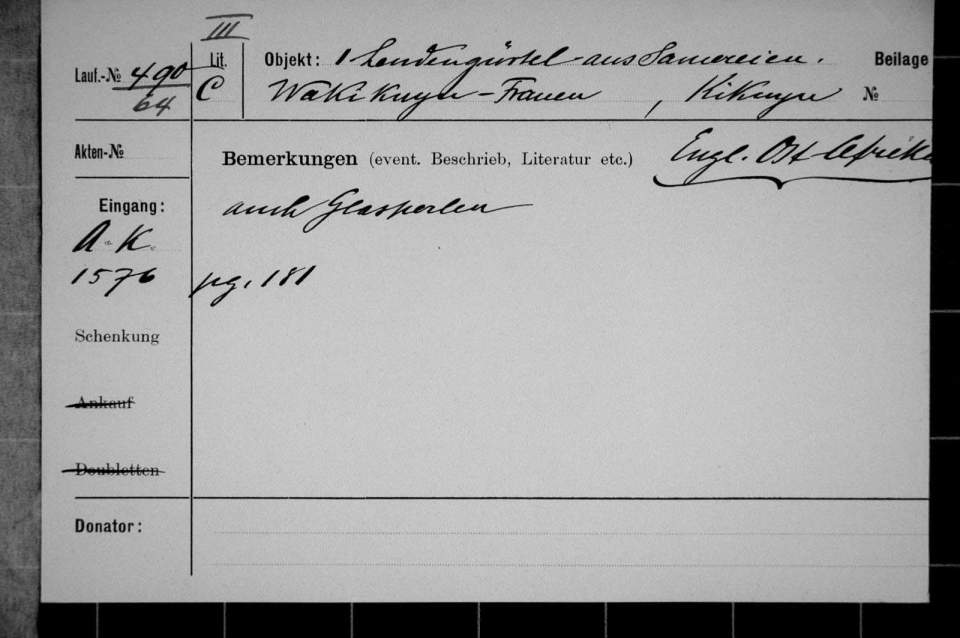 III
Lauf.-№ 490 Lit. Objekt: 1 Lendengürtel aus Samereien. Beilage
64 C Wakikuyu-Frauen, Kikuyu №
Akten-№ Bemerkungen (event. Beschrieb, Literatur etc.) Engl. Ost Afrika
Eingang: auch Glasperlen
A. K.
1576 pg. 181
Schenkung
Ankauf
Doubletten
Donator: